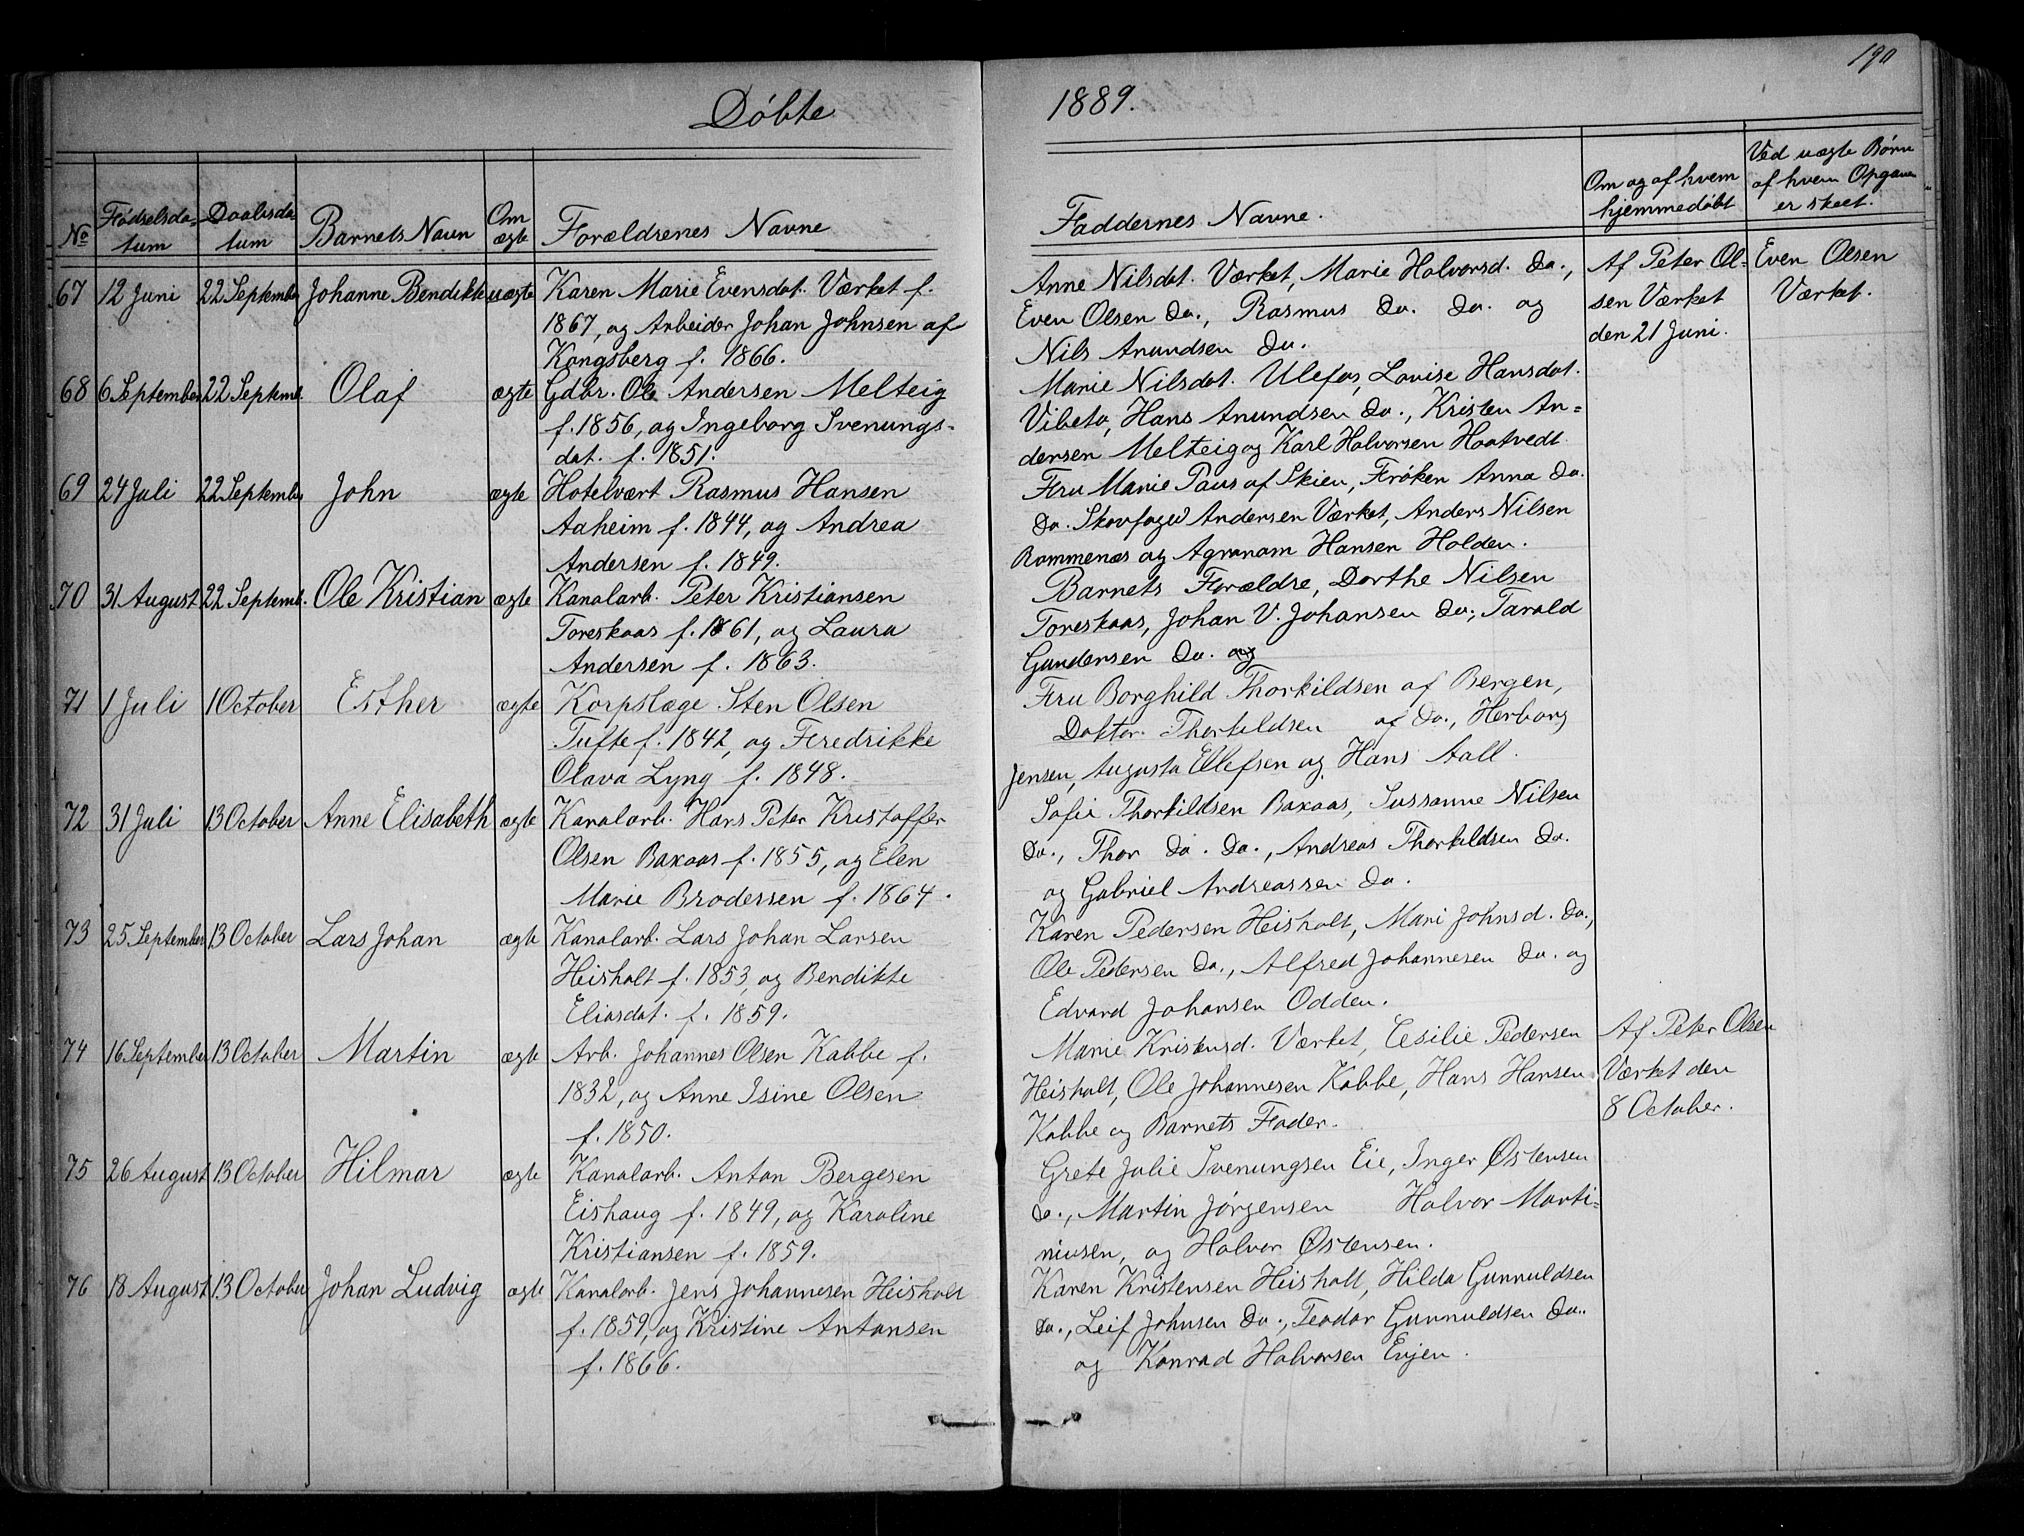 190
Døbte 1889.
No
Fødselsdatum
Daabsdatum
Barnets Navn
Om ægte
Forældrenes Navne
Faddernes Navne.
Om og af hvem hjemmedøbt
Ved uægte Børn af hvem Opgaven er skeet.
67 12 Juni 22 Septembr Johanne Bendikte uægte Karen Marie Evensdat. Værket f.
1867, og Arbeider Johan Johnsen af
Kongsberg f. 1866.
Anne Nilsdat. Værket, Marie Halvorsd. Do.,
Even Olsen Do., Rasmus Do. Do. og
Nils Anundsen Do.
Af Peter Ol-
sen Værket
den 21 Juni.
Even Olsen
Værket.
68 6 September 22 Septemb. Olaf ægte Gdbr. Ole Andersen Melteig
f. 1856, og Ingeborg Svenungs-
dat. f. 1851.
Marie Nilsdat. Ulefos, Lovise Hansdat.
Vibeto, Hans Anundsen Do., Kristen An=
dersen Melteig og Karl Halvorsen Haatvedt
69 24 Juli 22 Septembr John ægte Hotelvært Rasmus Hansen
Aaheim f. 1844, og Andrea
Andersen f. 1849.
Fru Marie Paus af Skien, Frøken Anna Do.
Do. Skovfoged Andersen Værket, Anders Nilsen
Rommenæs og Agronom Hansen Holden.
70 31 August 22 Septemb. Ole Kristian ægte Kanalarb. Peter Kristiansen
Toreskaas f. 1861, og Laura
Andersen f. 1863.
Barnets Forældre, Dorthe Nilsen
Toreskaas, Johan V. Johansen Do., Tarald
Gundersen Do. og
71 1 Juli 1 October Esther ægte Korpslæge Sten Olsen
Tufte f. 1842, og Fredrikke
Olava Lyng f. 1848.
Fru Borghild Thorkildsen af Bergen,
Doktor Thorkildsen af Do., Herborg
Jensen, Augusta Ellefsen og Hans Aall.
72 31 Juli 13 October Anne Elisabeth ægte Kanalarb. Hans Peter Kristoffer
Olsen Baxaas f. 1855, og Elen
Marie Brodersen f. 1864.
Sofie Thorkildsen Baxaas, Sussanne Nilsen
Do., Thor Do. Do., Andreas Thorkildsen Do.
og Gabriel Andreassen Do.
73 25 September 13 October Lars Johan ægte Kanalarb. Lars Johan Larsen
Heisholt f. 1853, og Bendikte
Eliasdat. f. 1859.
Karen Pedersen Heisholt, Mari Johnsd. Do.,
Ole Pedersen Do., Alfred Johannesen Do. og
Edvard Johansen Odden.
74 16 September 13 October Martin ægte Arb. Johannes Olsen Kabbe f.
1832, og Anne Isine Olsen
f. 1850.
Marie Kristensd. Værket, Cesilie Pedersen
Heisholt, Ole Johannesen Kabbe, Hans Hansen
Kabbe og Barnets Fader.
Af Peter Olsen
Værket den
8 October.
75 26 August 13 October Hilmar ægte Kanalarb. Anton Bergesen
Eishaug f. 1849, og Karoline
Kristiansen f. 1859.
Grete Julie Svenungsen Eie, Inger Østensen
Do., Martin Jørgensen Halvor Marti=
niusen, og Halvor Østensen.
76 18 August 13 October Johan Ludvig ægte Kanalarb. Jens Johannesen Heisholt
f. 1859, og Kristine Antonsen
f. 1866.
Karen Kristensen Heisholt, Hilda Gunnuldsen
Do., Leif Johnsen Do., Teodor Gunnuldsen Do.
og Konrad Halvorsen Evjen.